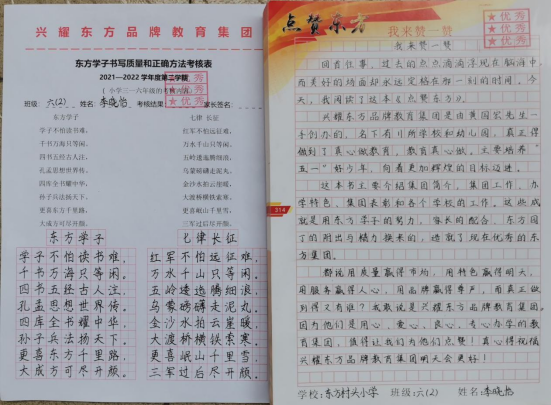 兴耀东方品牌教育集团
东方学子书写质量和正确方法考核表
2021—2022 学年度第二学期
(小学三—六年级的考核内容)
优秀
★优秀
班级: 六(2) 姓名: 李晓怡 考核结果: 家长签名:
东方学子
学子不怕读书难,
千书万海只等闲。
四书五经古人注,
孔孟思想世界传。
四库全书耀中华,
孙子兵法扬天下。
更喜东方千里路,
大成方可尽开颜。
七律 长征
红军不怕远征难,
万水千山只等闲。
五岭逶迤腾细浪,
乌蒙磅礴走泥丸。
金沙水拍云崖暖,
大渡桥横铁索寒。
更喜岷山千里雪,
三军过后尽开颜。
东方学子
学子不怕读书难,
千书万海只等闲。
四书五经古人注,
孔孟思想世界传。
四库全书耀中华,
孙子兵法扬天下。
更喜东方千里路,
大成方可尽开颜。
七律长征
红军不怕远征难,
万水千山只等闲。
五岭逶迤腾细浪,
乌蒙磅礴走泥丸。
金沙水拍云崖暖,
大渡桥横铁索寒。
更喜岷山千里雪,
三军过后尽开颜。
点赞东方
我来赞一赞
★优秀
★优秀
我来赞一赞
回首往事,过去的点点滴滴浮现在脑海中,
而美好的场面却永远定格在那一刻的时间。今
天,我阅读了这本《点赞东方》。
兴耀东方品牌教育集团是由黄国宏先生一
手创办的。名下有11所学校和幼儿园,真正得
做到了真心做教育,教育真心做。主要培养“
五一”好少年,向着更加辉煌的目标迈进。
这本书主要介绍集团简介,集团工作,办
学特色,集团表彰和各个学校的工作。这些成
就是用东方学子的努力,家长的配合,东方园
丁的付出与精力换来的,造就了现在优秀的东
方集团。
都说用质量赢得市场,用特色赢得明天,
用服务赢得人心,用品牌赢得尊严,而真正做
到得又有谁?我敢说是兴耀东方品牌教育集团。
因为他们是用心,爱心,良心,专心办学的教
育集团,值得让我们为他们点赞!真心得祝福
兴耀东方品牌教育集团明天会更好!
314
学校: 东方村头小学 班级: 六(2) 姓名: 李晓怡